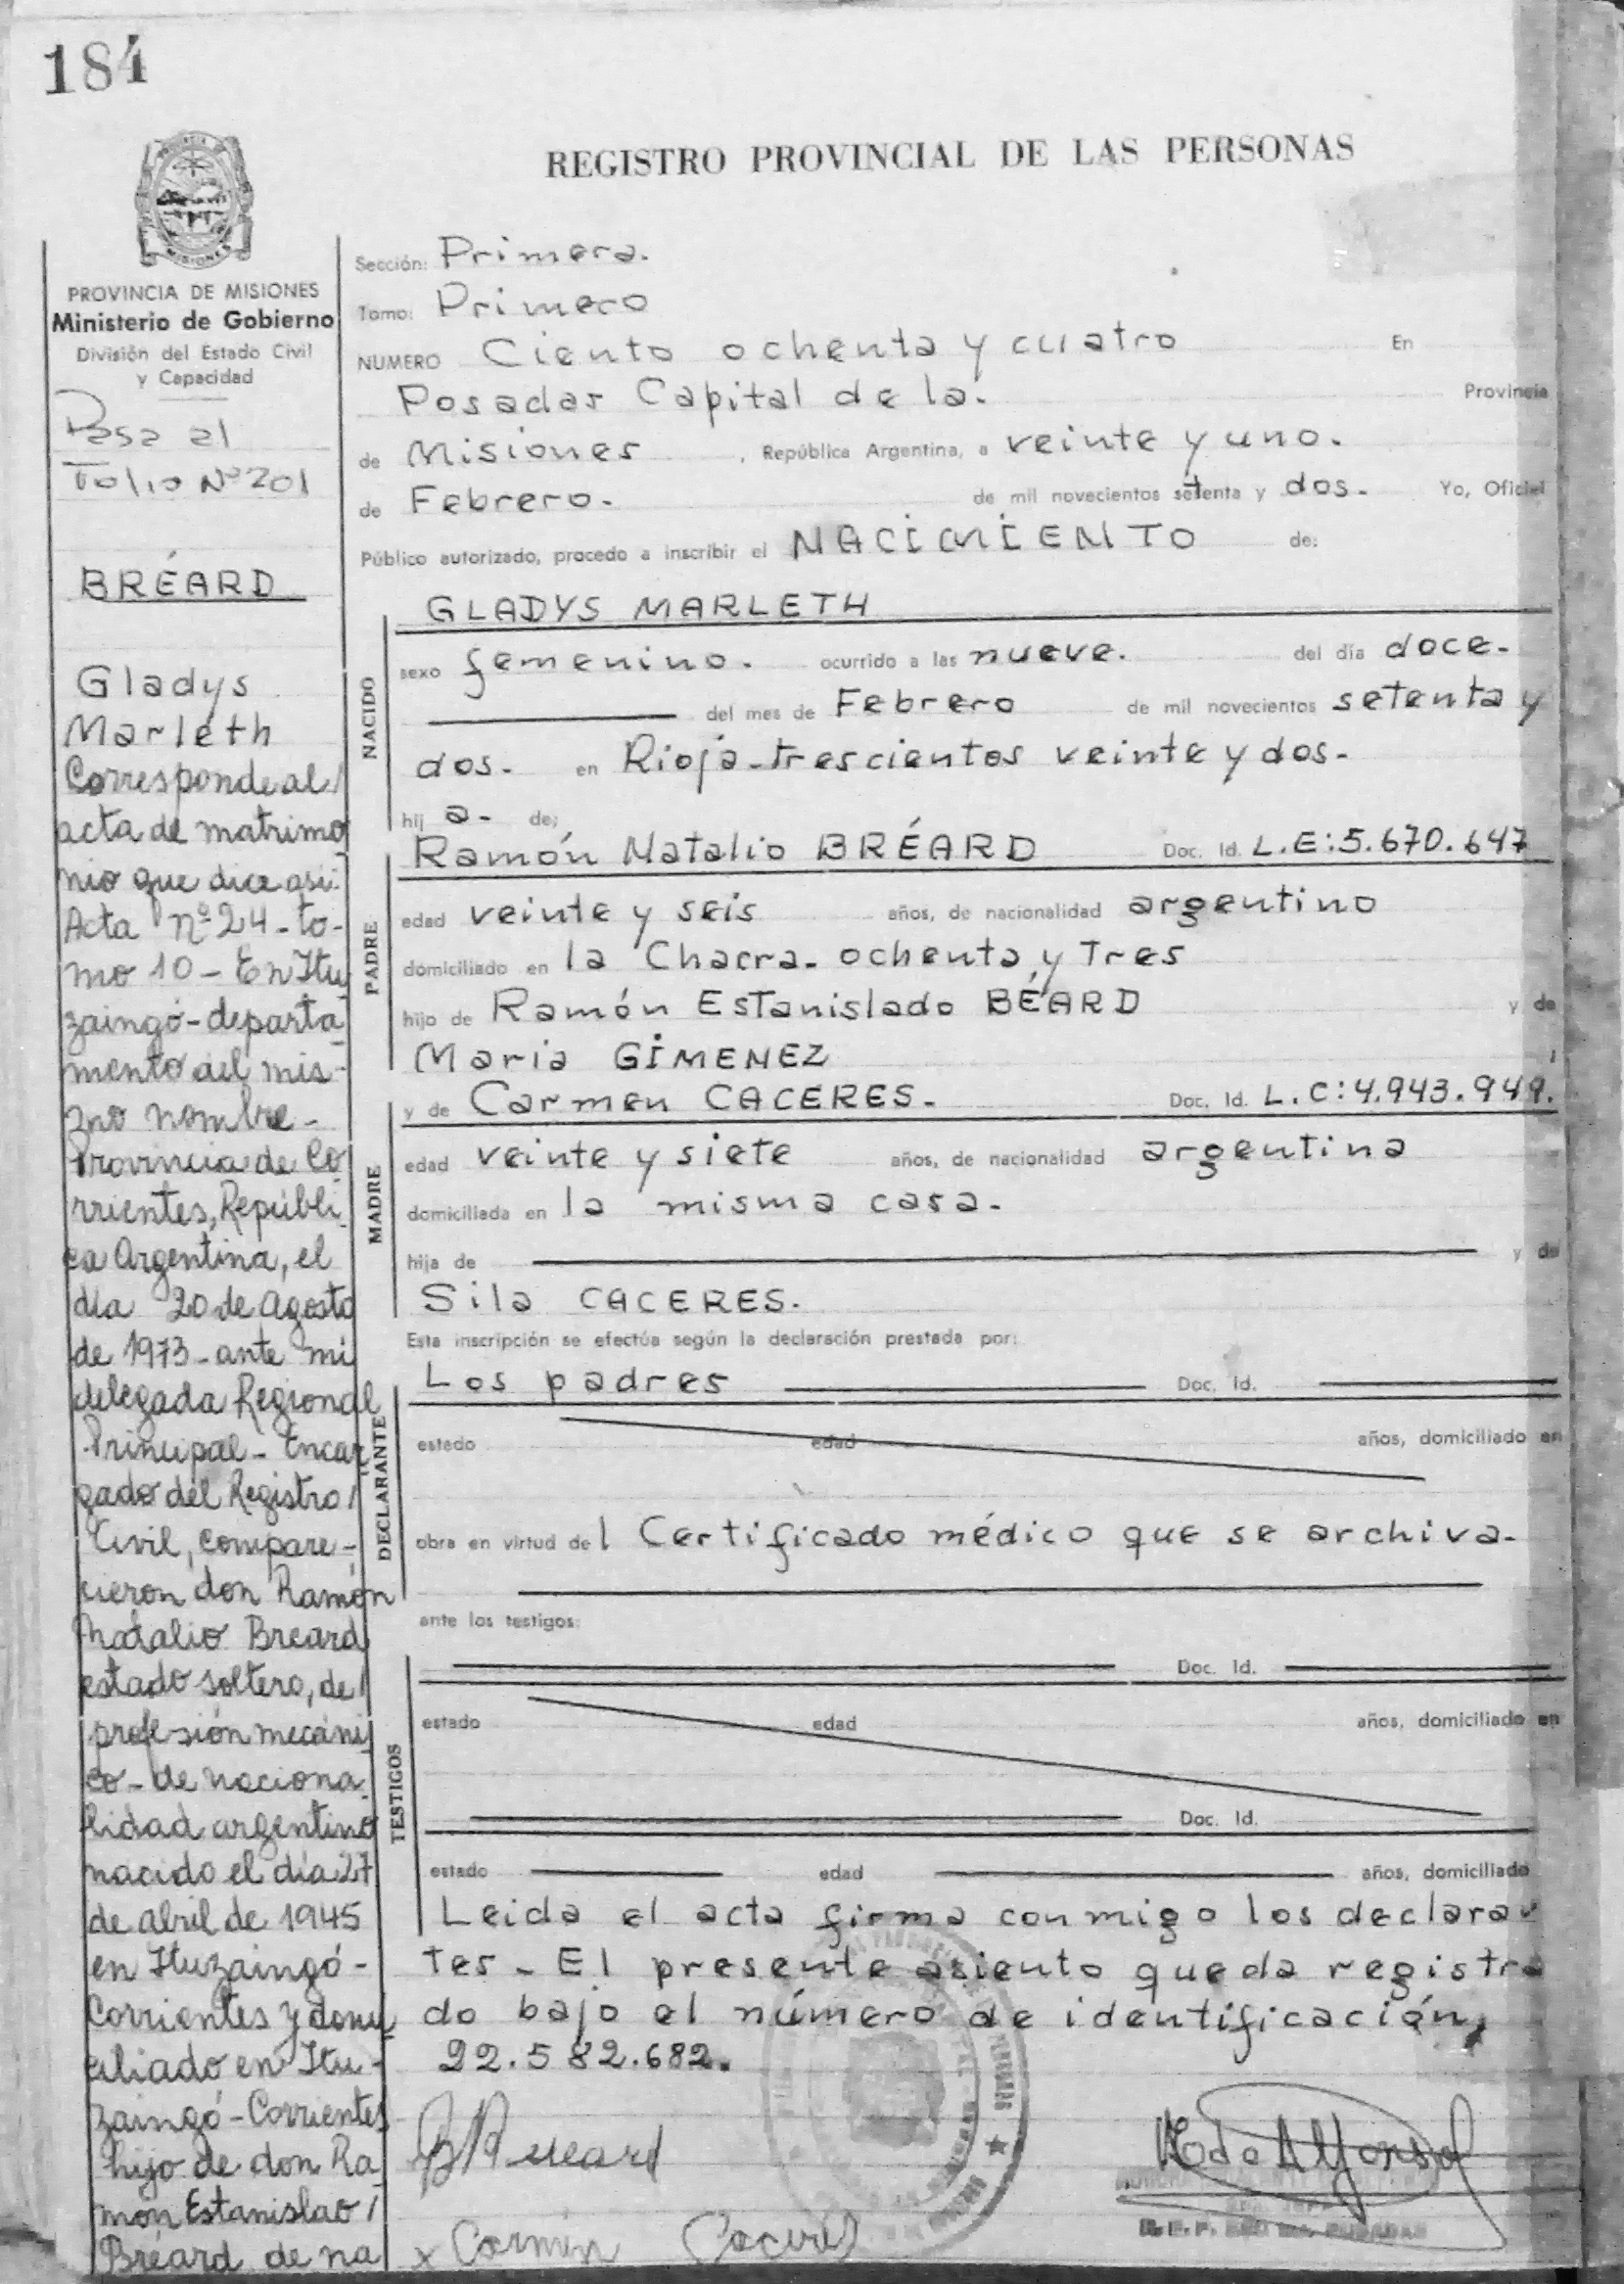 184
MISIONES
PROVINCIA DE MISIONES
Ministerio de Gobierno
División del Estado Civil
y Capacidad
Pasa al
Folio Nº 201
BRÉARD
Gladys
Marleth
Corresponde al
acta de matrimo
nio que dice asi:
Acta nº 24 - to-
mo 10 - En Itu
zaingó - departa
mento del mis-
mo nombre -
Provincia de Co
rrientes, Repúbli
ca Argentina, el
día 20 de Agosto
de 1973 - ante mi
delegada Regional
Principal - Encar
gado del Registro
Civil, compare-
cieron don Ramón
Natalio Breard
estado soltero, de
profesión mecáni
co - de naciona
lidad argentino
nacido el día 27
de abril de 1945
en Ituzaingó -
Corrientes y domi
ciliado en Itu-
zaingó - Corrientes
hijo de don Ra
món Estanislao
Bréard de na
REGISTRO PROVINCIAL DE LAS PERSONAS
Sección: Primera.
Tomo: Primero
NUMERO Ciento ochenta y cuatro En
Posadas Capital de la. Provincia
de Misiones, República Argentina, a veinte y uno.
de Febrero. de mil novecientos setenta y dos. Yo, Oficial
Público autorizado, procedo a inscribir el NACIMIENTO de:
NACIDO
GLADYS MARLETH
sexo femenino. ocurrido a las nueve. del día doce.
del mes de Febrero de mil novecientos setenta y
dos. en Rioja - trescientos veinte y dos.
hij a. de;
PADRE
Ramón Natalio BRÉARD Doc. Id. L.E:5.670.647
edad veinte y seis años, de nacionalidad argentino
domiciliado en la Chacra - ochenta y Tres
hijo de Ramón Estanislado BÉARD y de
Maria GIMENEZ
MADRE
y de Carmen CACERES. Doc. Id. L.C:4.943.949.
edad veinte y siete años, de nacionalidad argentina
domiciliada en la misma casa.
hija de y de
Sila CACERES.
Esta inscripción se efectúa según la declaración prestada por:
DECLARANTE
Los padres Doc. Id.
estado edad años, domiciliado en
obra en virtud del Certificado médico que se archiva.
ante los testigos:
TESTIGOS
Doc. Id.
estado edad años, domiciliado en
Doc. Id.
estado edad años, domiciliado
Leida el acta firma conmigo los declaran
tes - El presente asiento queda registra
do bajo el número de identificación,
22.582.682.
Carmen Caceres